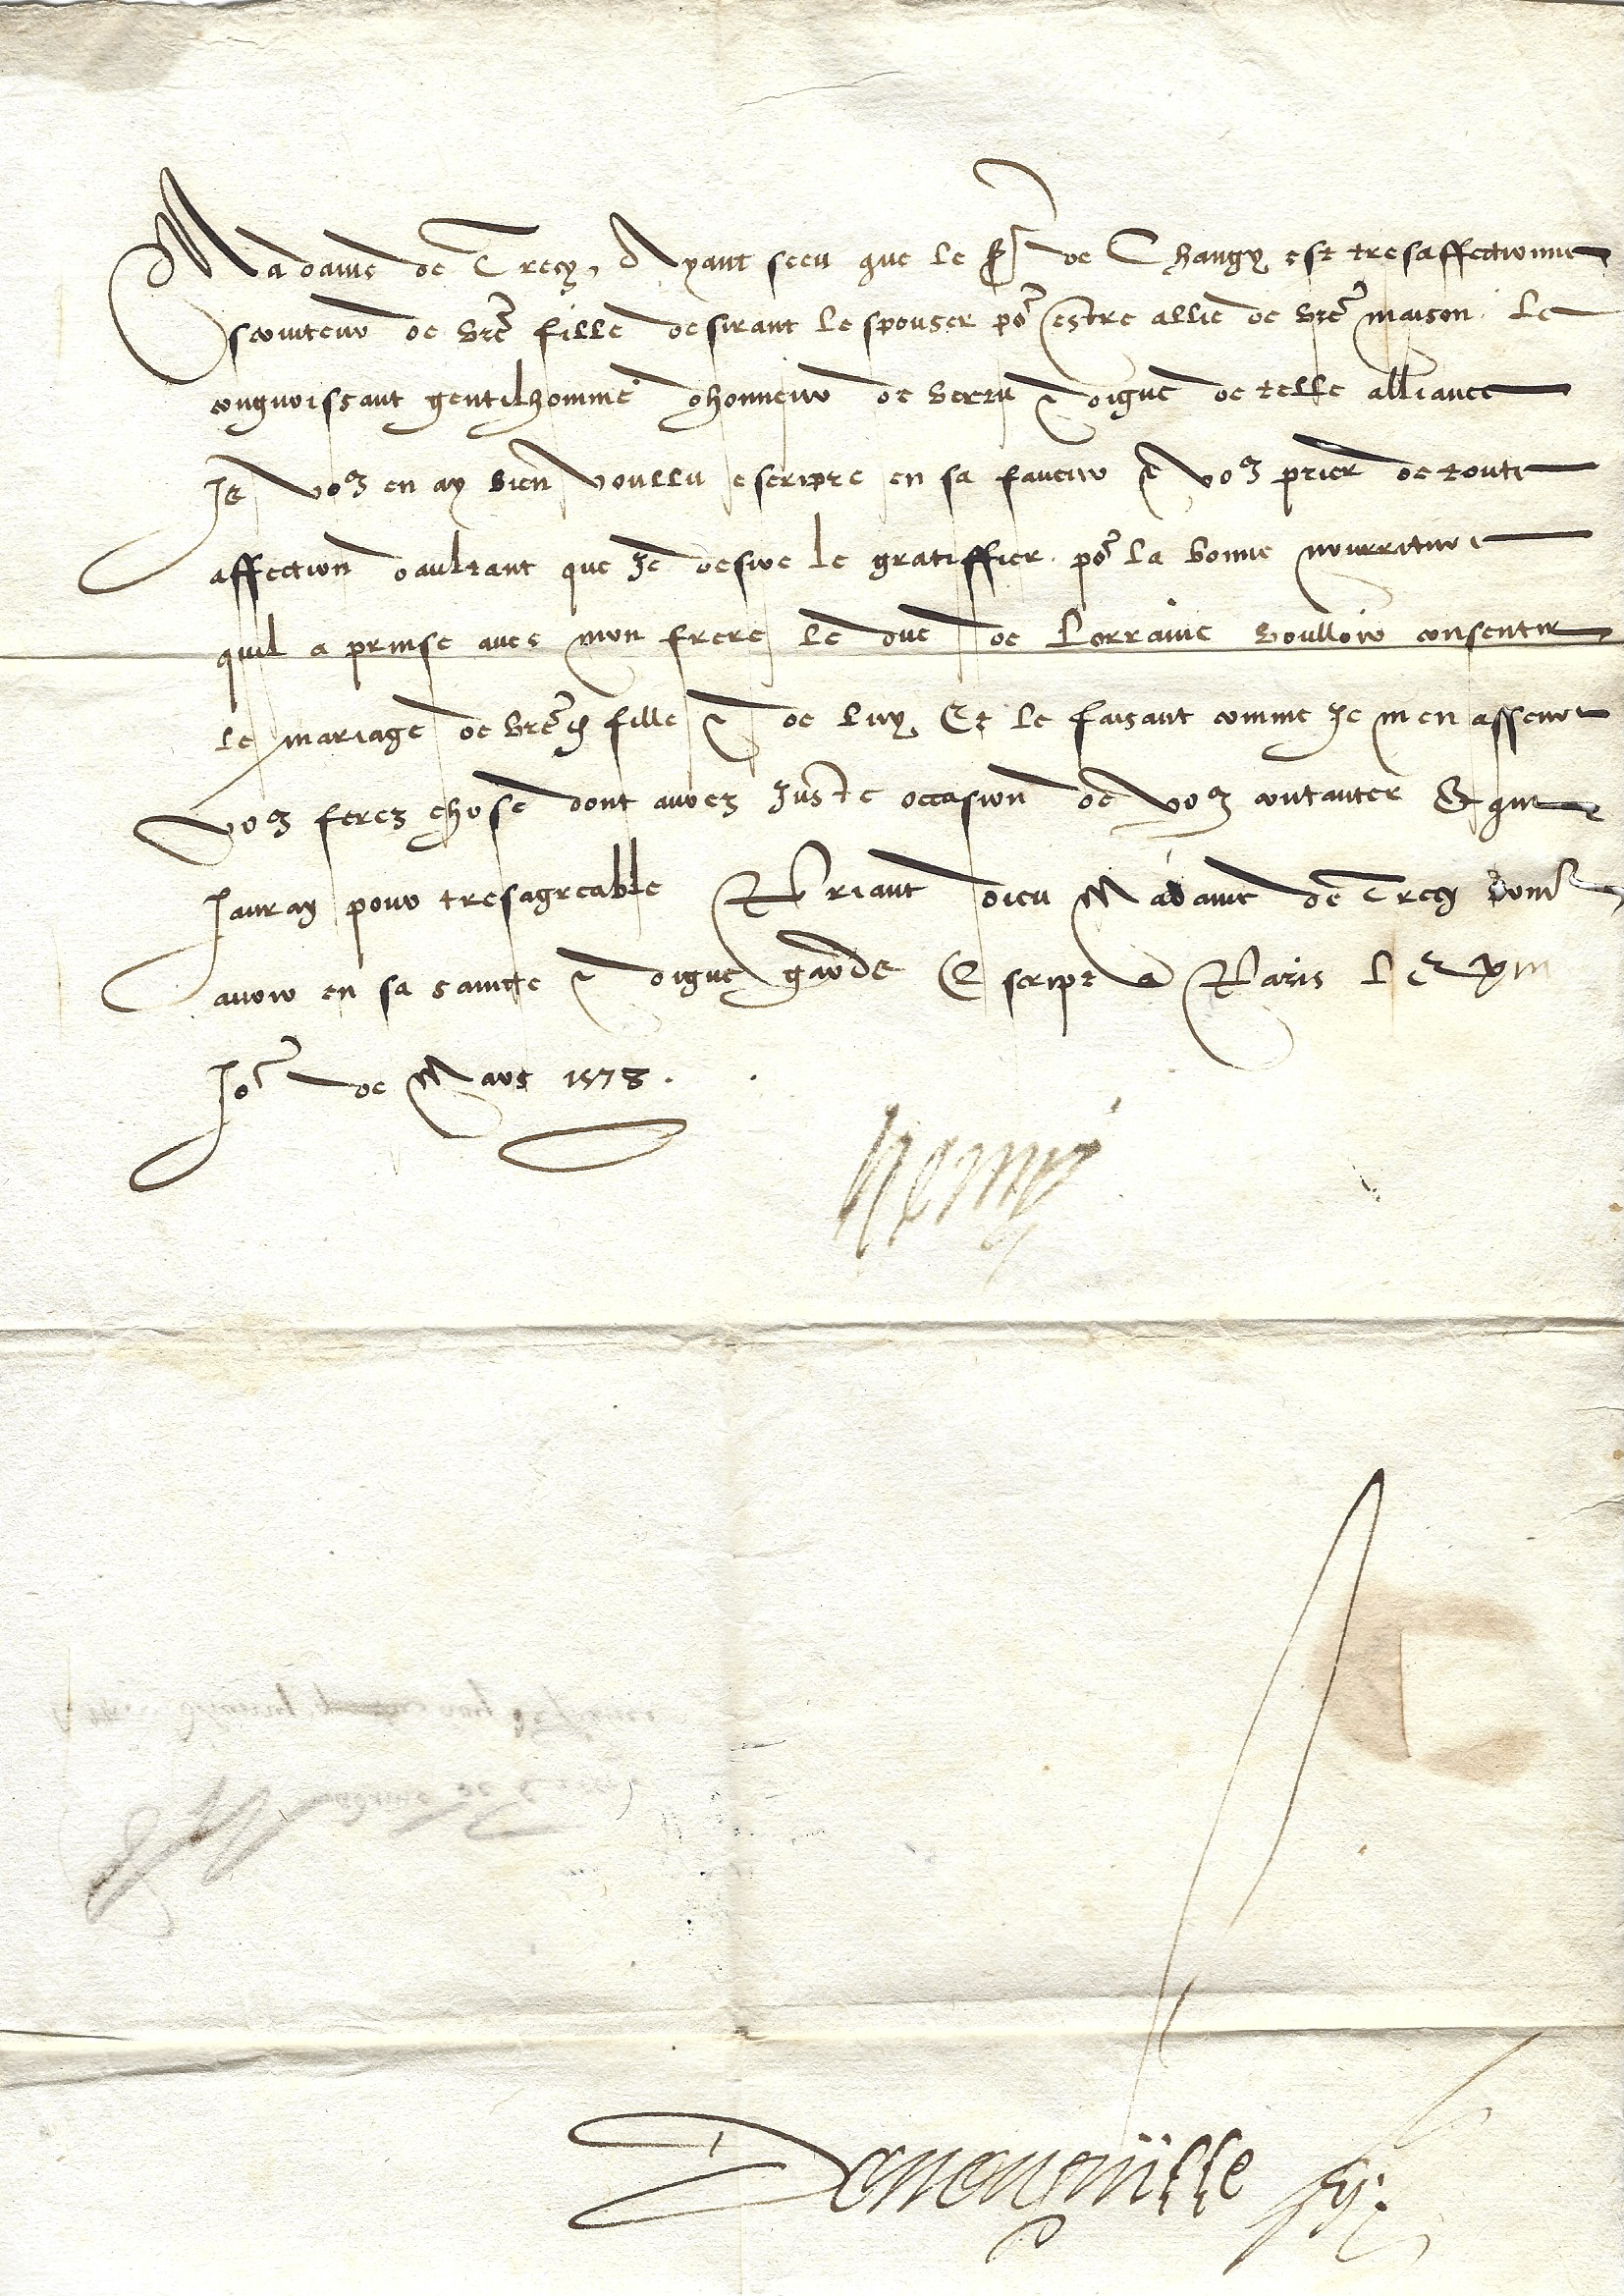 Madame de Trecy, Ayant sceu que le sr de Changy est tresaffectionne
serviteur de vre fille desirant lespouser pour estre allie de vre maison. Le
congnoissant gentilhomme dhonneur de vertu & digne de telle alliance
Je vous en ay bien voullu escripre en sa faveur & vous prier de toute
affection daultant que Je desire le gratiffier pour la bonne nourriture
quil a prinse avec mon frere le duc de Lorraine voulloir consentir
le mariage de vred fille & de luy. Et le faisant comme Je men asseure
vous ferez chose dont aurez Juste occasion de vous contanter Et que
Jauray pour tresagreable Priant dieu Madame de Trecy vous
avoir en sa saincte & digne garde Escript a Paris le xiii
Jour de Mars 1578.
henry
Deneufville